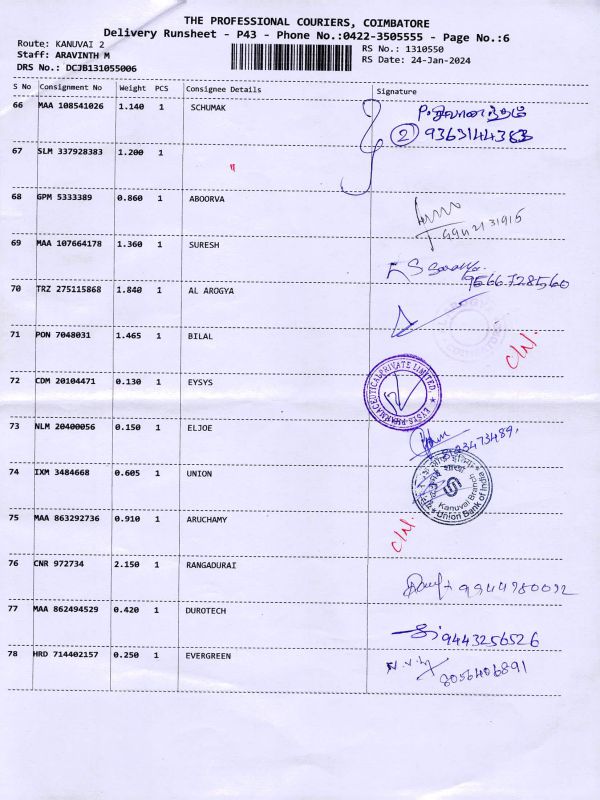 THE PROFESSIONAL COURIERS, COIMBATORE
Delivery Runsheet - P43 - Phone No.:0422-3505555 - Page No.:6
Route: KANUVAI 2
Staff: ARAVINTH M
DRS No.: DCJB131055006
RS No.: 1310550
RS Date: 24-Jan-2024
S No Consignment No Weight PCS Consignee Details Signature
66 MAA 108541026 1.140 1 SCHUMAK
2 9363144383
67 SLM 337928383 1.200 1 "
68 GPM 5333389 0.860 1 ABOORVA
9942131915
69 MAA 107664178 1.360 1 SURESH
9566728560
70 TRZ 275115868 1.840 1 AL AROGYA
71 PON 7048031 1.465 1 BILAL
C/N.
72 CDM 20104471 0.130 1 EYSYS
EYSYS PHARMACEUTICAL PRIVATE LIMITED
73 NLM 20400056 0.150 1 ELJOE
74 IXM 3484668 0.605 1 UNION
Kanuvai Branch
Union Bank of India
75 MAA 863292736 0.910 1 ARUCHAMY C/N.
76 CNR 972734 2.150 1 RANGADURAI
9944980092
77 MAA 862494529 0.420 1 DUROTECH
9443256526
78 HRD 714402157 0.250 1 EVERGREEN
8056406891